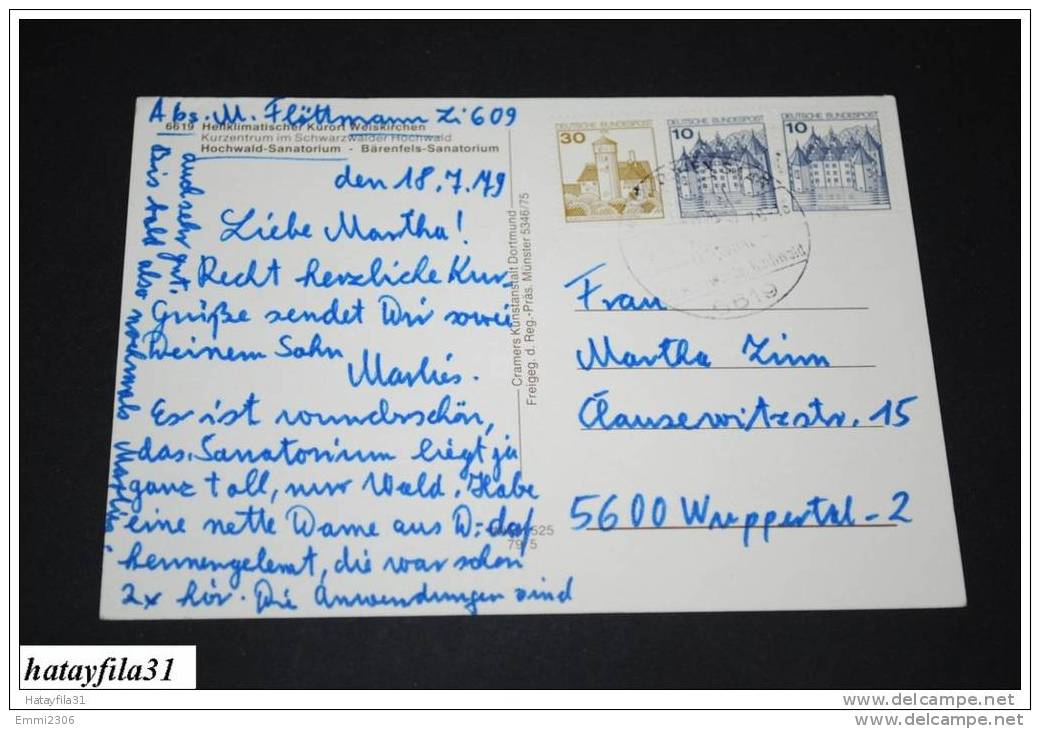 Abs. M. Flöttmann Zi 609
6619 Heilklimatischer Kurort Weiskirchen
Kurzentrum im Schwarzwälder Hochwald
Hochwald-Sanatorium - Bärenfels-Sanatorium
den 18.7.79
Liebe Martha!
Recht herzliche Kur
Grüße sendet Dir sowie
Deinem Sohn
Marlies.
Es ist wunderschön,
das Sanatorium liegt ja
ganz toll, nur Wald. Habe
eine nette Dame aus D:-dorf
kennengelernt, die war schon
2x hier. Die Anwendungen sind
auch sehr gut.
Bis bald also nochmals Marlies
Cramers Kunstanstalt Dortmund
Freigeg. d. Reg.-Präs. Münster 5346/75
525
DEUTSCHE BUNDESPOST
30
DEUTSCHE BUNDESPOST
10
DEUTSCHE BUNDESPOST
10
6619
Frau
Martha Zinn
Clausewitzstr. 15
5600 Wuppertal-2
hatayfila31
Hatayfila31
Emmi2306
www.delcampe.net
www.delcampe.net